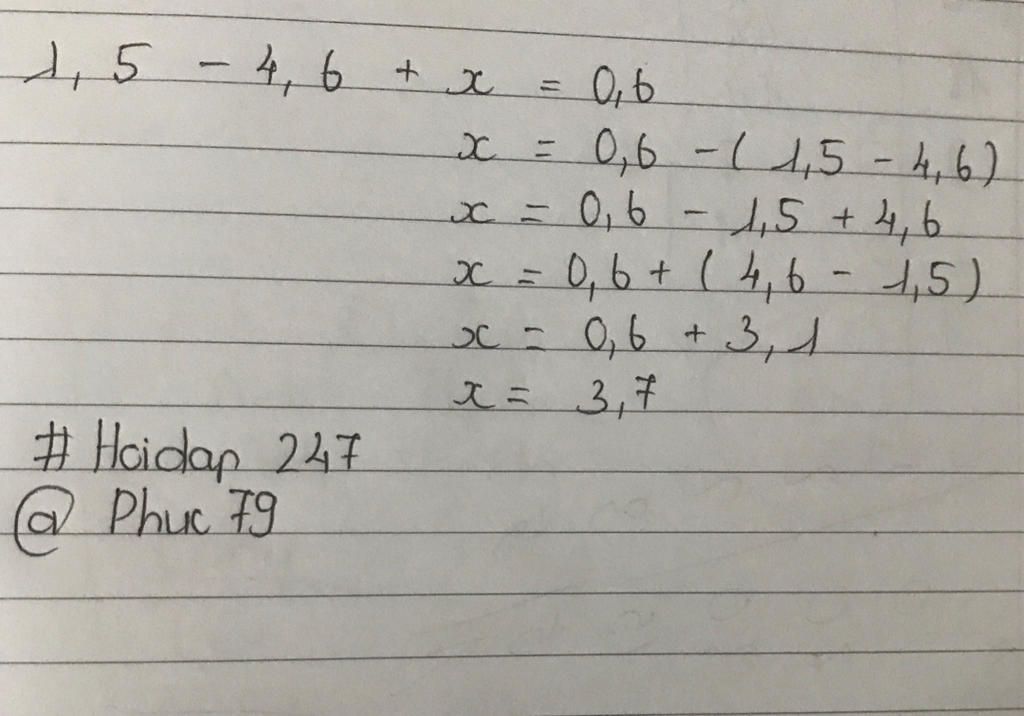 1,5 - 4,6 + x = 0,6
x = 0,6 - ( 1,5 - 4,6)
x = 0,6 - 1,5 + 4,6
x = 0,6 + ( 4,6 - 1,5)
x = 0,6 + 3,1
x = 3,7
# Hoidap 247
@ Phuc 79